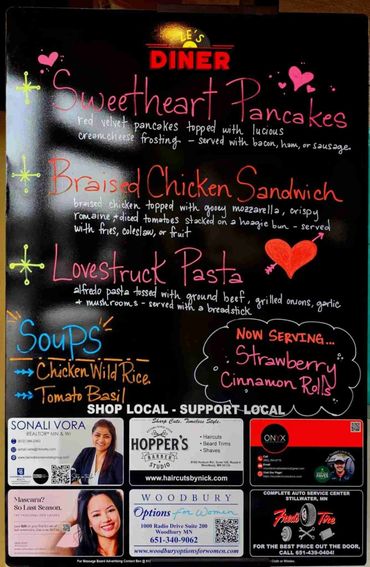 LE'S
DINER
Sweetheart Pancakes
red velvet pancakes topped with lucious
creamcheese frosting - served with bacon, ham, or sausage
Braised Chicken Sandwich
braised chicken topped with gooey mozzarella, crispy
romaine + diced tomatoes stacked on a hoagie bun - served
with fries, coleslaw, or fruit
Lovestruck Pasta
alfredo pasta tossed with ground beef, grilled onions, garlic
+ mushrooms - served with a breadstick
Soups
Chicken Wild Rice
Tomato Basil
NOW SERVING...
Strawberry
Cinnamon Rolls
SHOP LOCAL - SUPPORT LOCAL
SONALI VORA
REALTOR® MN & WI
Sharp Cuts. Timeless Style.
HOPPER'S
BARBER
STUDIO
• Haircuts
• Beard Trims
• Shaves
www.haircutsbynick.com
ONYX
Mascara?
So Last Season.
WOODBURY
Options for Women
1000 Radio Drive Suite 200
Woodbury MN
651-340-9062
www.woodburyoptionsforwomen.com
COMPLETE AUTO SERVICE CENTER
STILLWATER, MN
Fred's Tire
FOR THE BEST PRICE OUT THE DOOR,
CALL 651-439-0404!